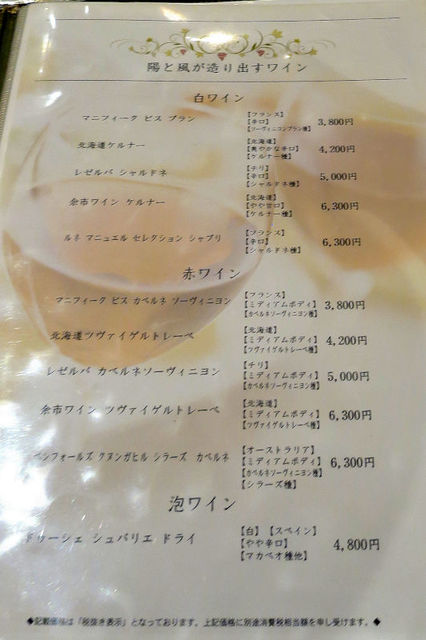 陽と風が造り出すワイン
白ワイン
マニフィーク ビス ブラン 【フランス】
【辛口】 3,800円
【ソーヴィニヨンブラン種】
北海道ケルナー 【北海道】
【爽やかな辛口】 4,200円
【ケルナー種】
レゼルバ シャルドネ 【チリ】
【辛口】 5,000円
【シャルドネ種】
余市ワイン ケルナー 【北海道】
【やや甘口】 6,300円
【ケルナー種】
ルネ マニュエル セレクション シャブリ 【フランス】
【辛口】 6,300円
【シャルドネ種】
赤ワイン
マニフィーク ビス カベルネ ソーヴィニヨン 【フランス】
【ミディアムボディ】 3,800円
【カベルネソーヴィニヨン種】
北海道ツヴァイゲルトレーベ 【北海道】
【ミディアムボディ】 4,200円
【ツヴァイゲルトレーベ種】
レゼルバ カベルネソーヴィニヨン 【チリ】
【ミディアムボディ】 5,000円
【カベルネソーヴィニヨン種】
余市ワイン ツヴァイゲルトレーベ 【北海道】
【ミディアムボディ】 6,300円
【ツヴァイゲルトレーベ種】
ペンフォールズ クヌンガヒル シラーズ カベルネ 【オーストラリア】
【ミディアムボディ】 6,300円
【カベルネソーヴィニヨン種】
【シラーズ種】
泡ワイン
ドゥーシェ シュバリエ ドライ 【白】【スペイン】
【やや辛口】 4,800円
【マカベオ種他】
◆記載価格は「税抜き表示」となっております。上記価格に別途消費税相当額を申し受けます。◆